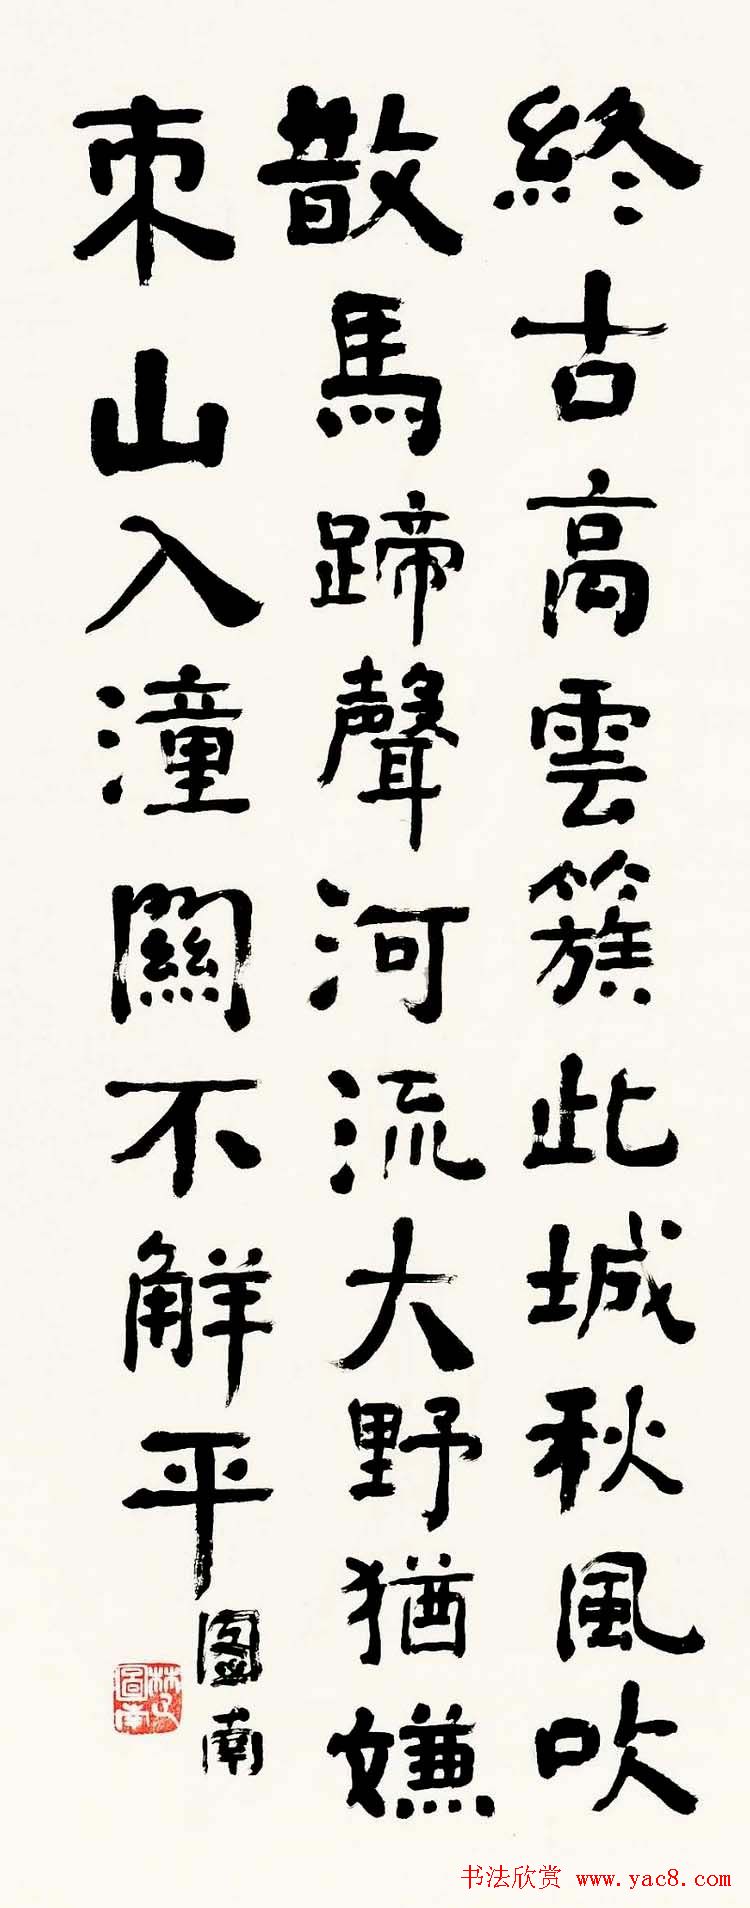 終古高雲簇此城秋風吹
散馬蹄聲河流大野猶嫌
束山入潼關不解平
圖南
林子
圖南
书法欣赏 www.yac8.com